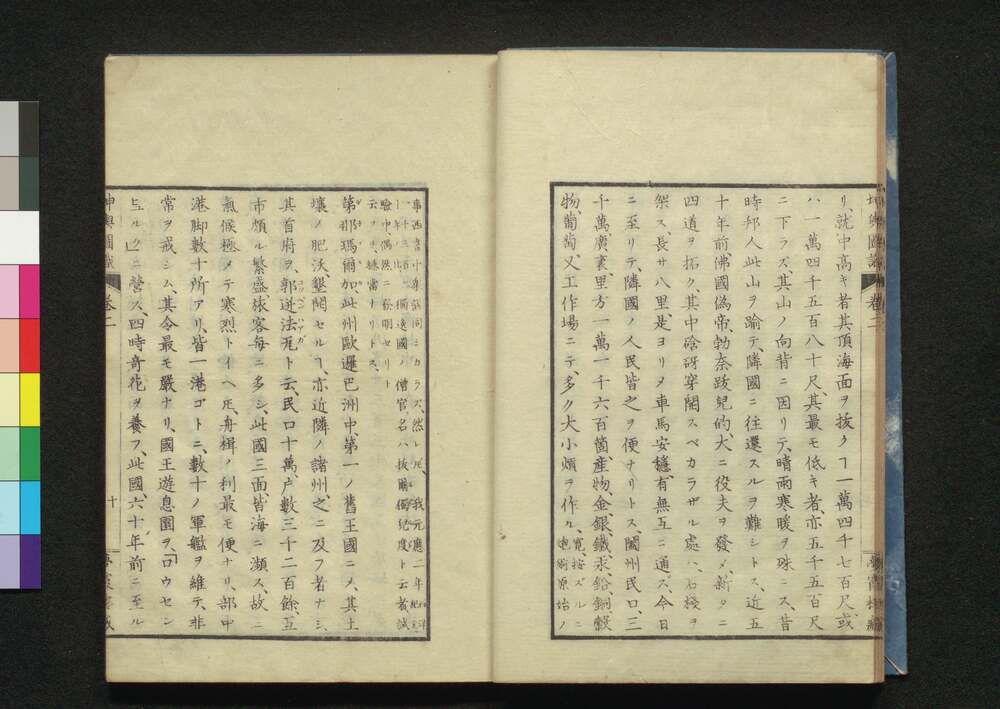 リ、就中高キ者其頂海面ヲ抜クヿ一萬四千七百尺、或
ハ一萬四千五百八十尺、其最モ低キ者、亦五千五百尺
ニ下ラズ、其山ノ向背ニ因リテ、晴雨寒暖ヲ殊ニス、昔
時邦人此山ヲ踰テ、隣國ニ往還スルヲ難シトス、近五
十年前、佛國偽帝、勃奈跋兒的、大ニ役夫ヲ發メ、新タニ
四道ヲ拓ク、其中硿砑穿開スベカラザル處ハ、石棧ヲ
架ス、長サ八里、是ヨリメ車馬安穏、有無互ニ通ス、今日
ニ至リテ、隣國ノ人民皆之ヲ便ナリトス、闔州民口、三
千萬、廣裏里方一萬一千六百箇、産物、金、銀、鐵、汞、鉛、銅、穀
物、葡萄、又工作場ニテ、多ク大小熕ヲ作ル、
砲術原始ノ
然レ𪜈、我元應二年
獨逸國ノ僧官名ハ
ト云者試
驗中偶然ニ發明セリト
云フヲ以テ當レリトス、
第那瑪爾加、此州歐邏巴洲中、第一ノ舊王國ニメ、其土
壌ノ肥沃、墾開セルヿ、亦近隣ノ諸州、之ニ及フ者ナシ、
其首府ヲ、郭逬法瓦ト云、民口十萬、戸數三千二百餘、五
市頗ル繁盛、旅客毎ニ多シ、此國三面、皆海ニ瀕ス、故ニ
氣候極メテ寒烈トイヘ𪜈、舟楫ノ利最モ便ナリ、部中
港脚數十所アリ、皆一港ゴトニ、數十ノ軍艦ヲ維テ、非
常ヲ戒シム、其令最モ嚴ナリ、國王遊息園ヲ、「ロウセン
ビルク」ニ營ス、四時奇花ヲ養フ、此國六十年前ニ至ル
坤輿圖識
卷二
十